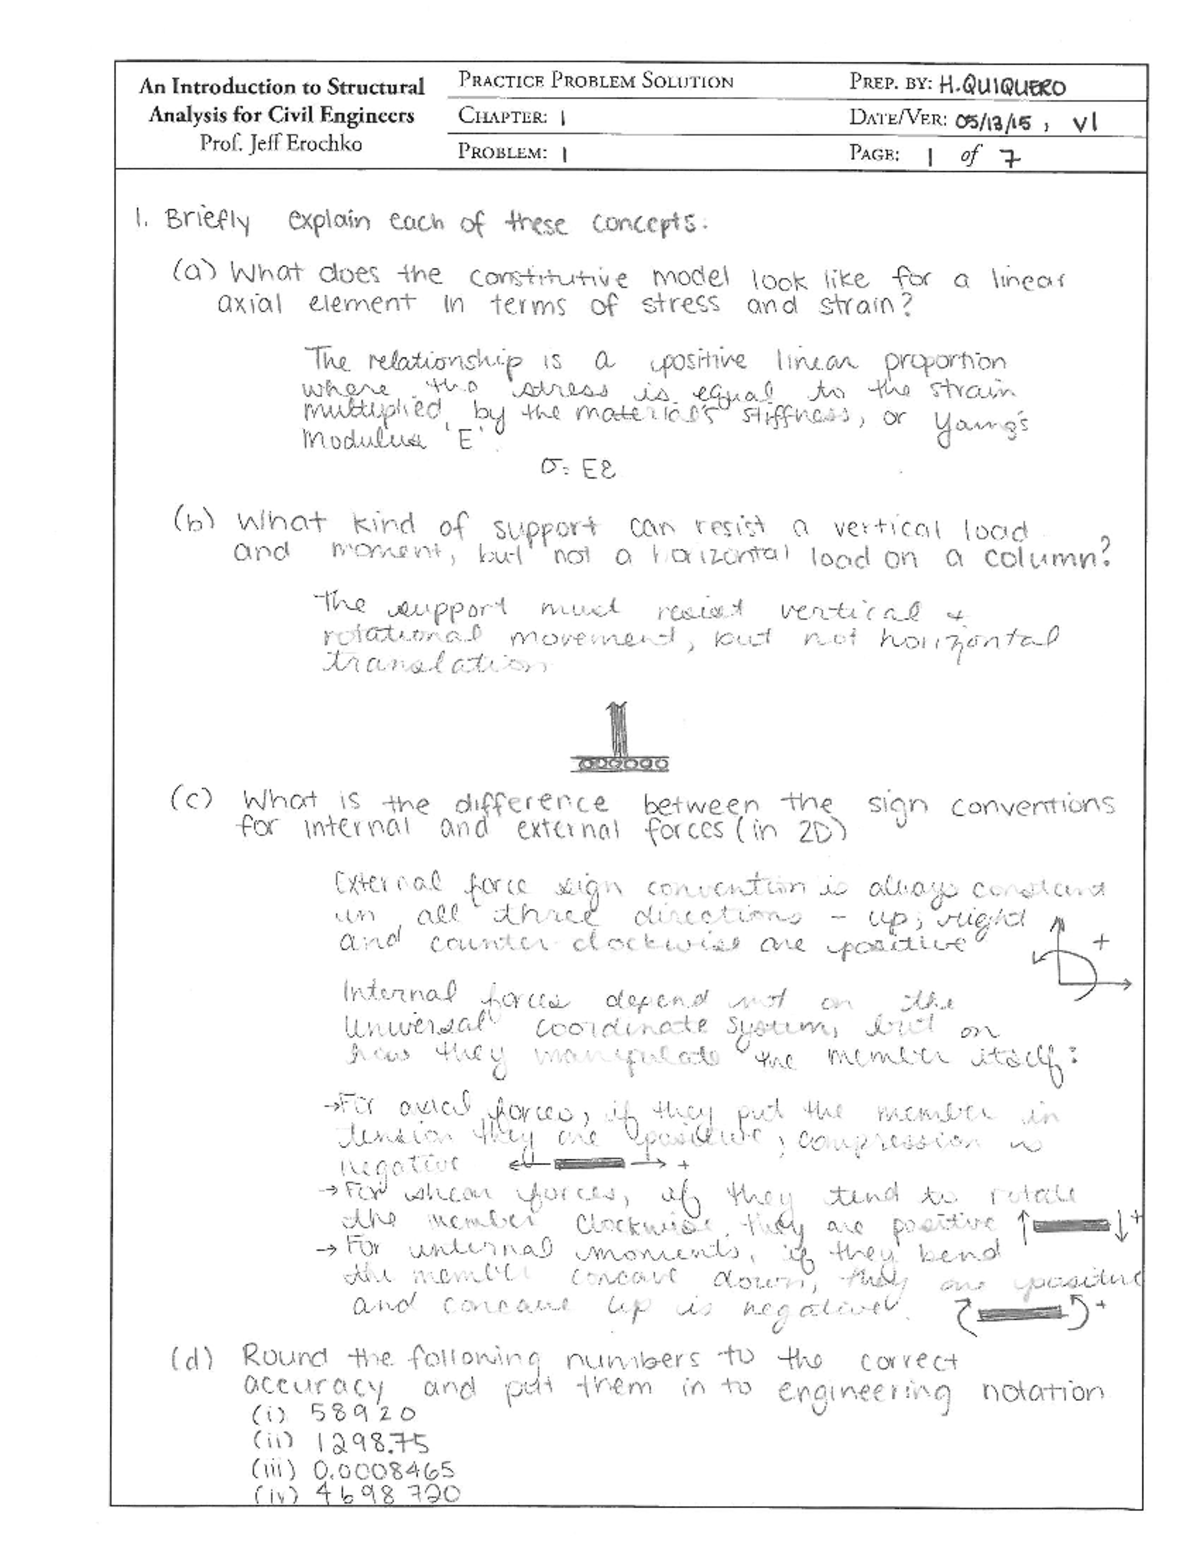 An Introduction to Structural
Analysis for Civil Engineers
Prof. Jeff Erochko
PRACTICE PROBLEM SOLUTION
CHAPTER: 1
PROBLEM: 1
PREP. BY: H. QUIQUERO
DATE/VER: 05/13/15, v1
PAGE: 1 of 7
1. Briefly explain each of these concepts.
(a) What does the constitutive model look like for a linear
axial element in terms of stress and strain?
The relationship is a positive linear proportion
where the stress is equal to the strain
multiplied by the material's stiffness, or Young's
Modulus 'E'.
σ = Eε
(b) What kind of support can resist a vertical load
and moment, but not a horizontal load on a column?
The support must resist vertical +
rotational movement, but not horizontal
translation
(c) What is the difference between the sign conventions
for internal and external forces (in 2D)
External force sign convention is always constant
in all three directions - up, right
and counter clockwise are positive
+
Internal forces depend not on the
universal coordinate system, but on
how they manipulate the member itself:
→For axial forces, if they put the member in
tension they are positive, compression is
negative +
→ For shear forces, if they tend to rotate
the member clockwise, they are positive +
→ For internal moments, if they bend
the member concave down, they are positive
and concave up is negative. +
(d) Round the following numbers to the correct
accuracy and put them in to engineering notation
(i) 58920
(ii) 1298.75
(iii) 0.0008465
(iv) 4698720